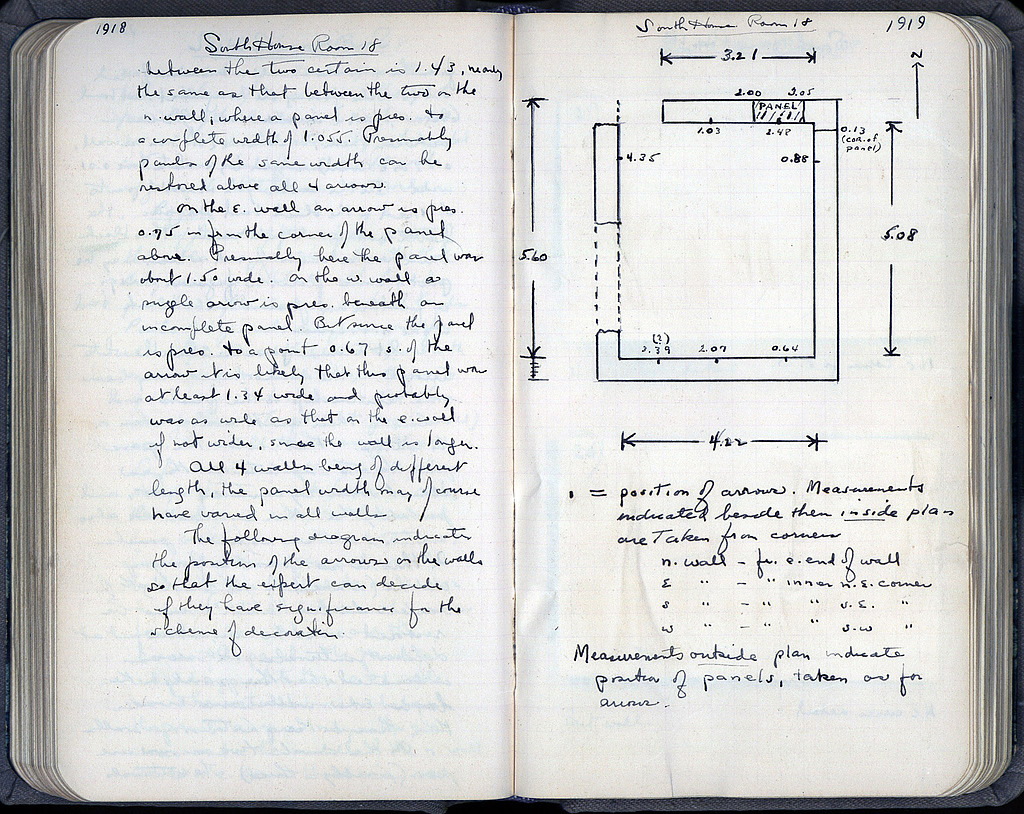 1918
South House Room 18
between the two certain is 1.43, nearly
the same as that between the two on the
n. wall, where a panel is pres. to
a complete width of 1.055. Presumably
panels of the same width can be
restored above all 4 arrows.
On the E. wall an arrow is pres.
0.75 m from the corner of the panel
above. Presumably here the panel was
about 1.50 wide. On the w. wall a
single arrow is pres. beneath an
incomplete panel. But since the panel
is pres. to a point 0.67 s. of the
arrow it is likely that this panel was
at least 1.34 wide and probably
was as wide as that on the e. wall
if not wider, since the wall is longer.
All 4 walls being of different
length, the panel width may of course
have varied in all walls.
The following diagram indicates
the position of the arrows on the walls
so that the expert can decide
if they have significance for the
scheme of decoration.
South House Room 18
1919
N
3.21
2.00 3.05
PANEL
1.03 2.48
0.13
(cor. of
panel)
4.35
0.88
5.60
5.08
(?)
3.39 2.07 0.64
4.22
= position of arrows. Measurements
indicated beside them inside plan
are taken from corners
n. wall - fr. e. end of wall
E " - " inner n.E. corner
s " - " " s.E. "
w " - " " s.w "
Measurements outside plan indicate
position of panels, taken as for
arrows.